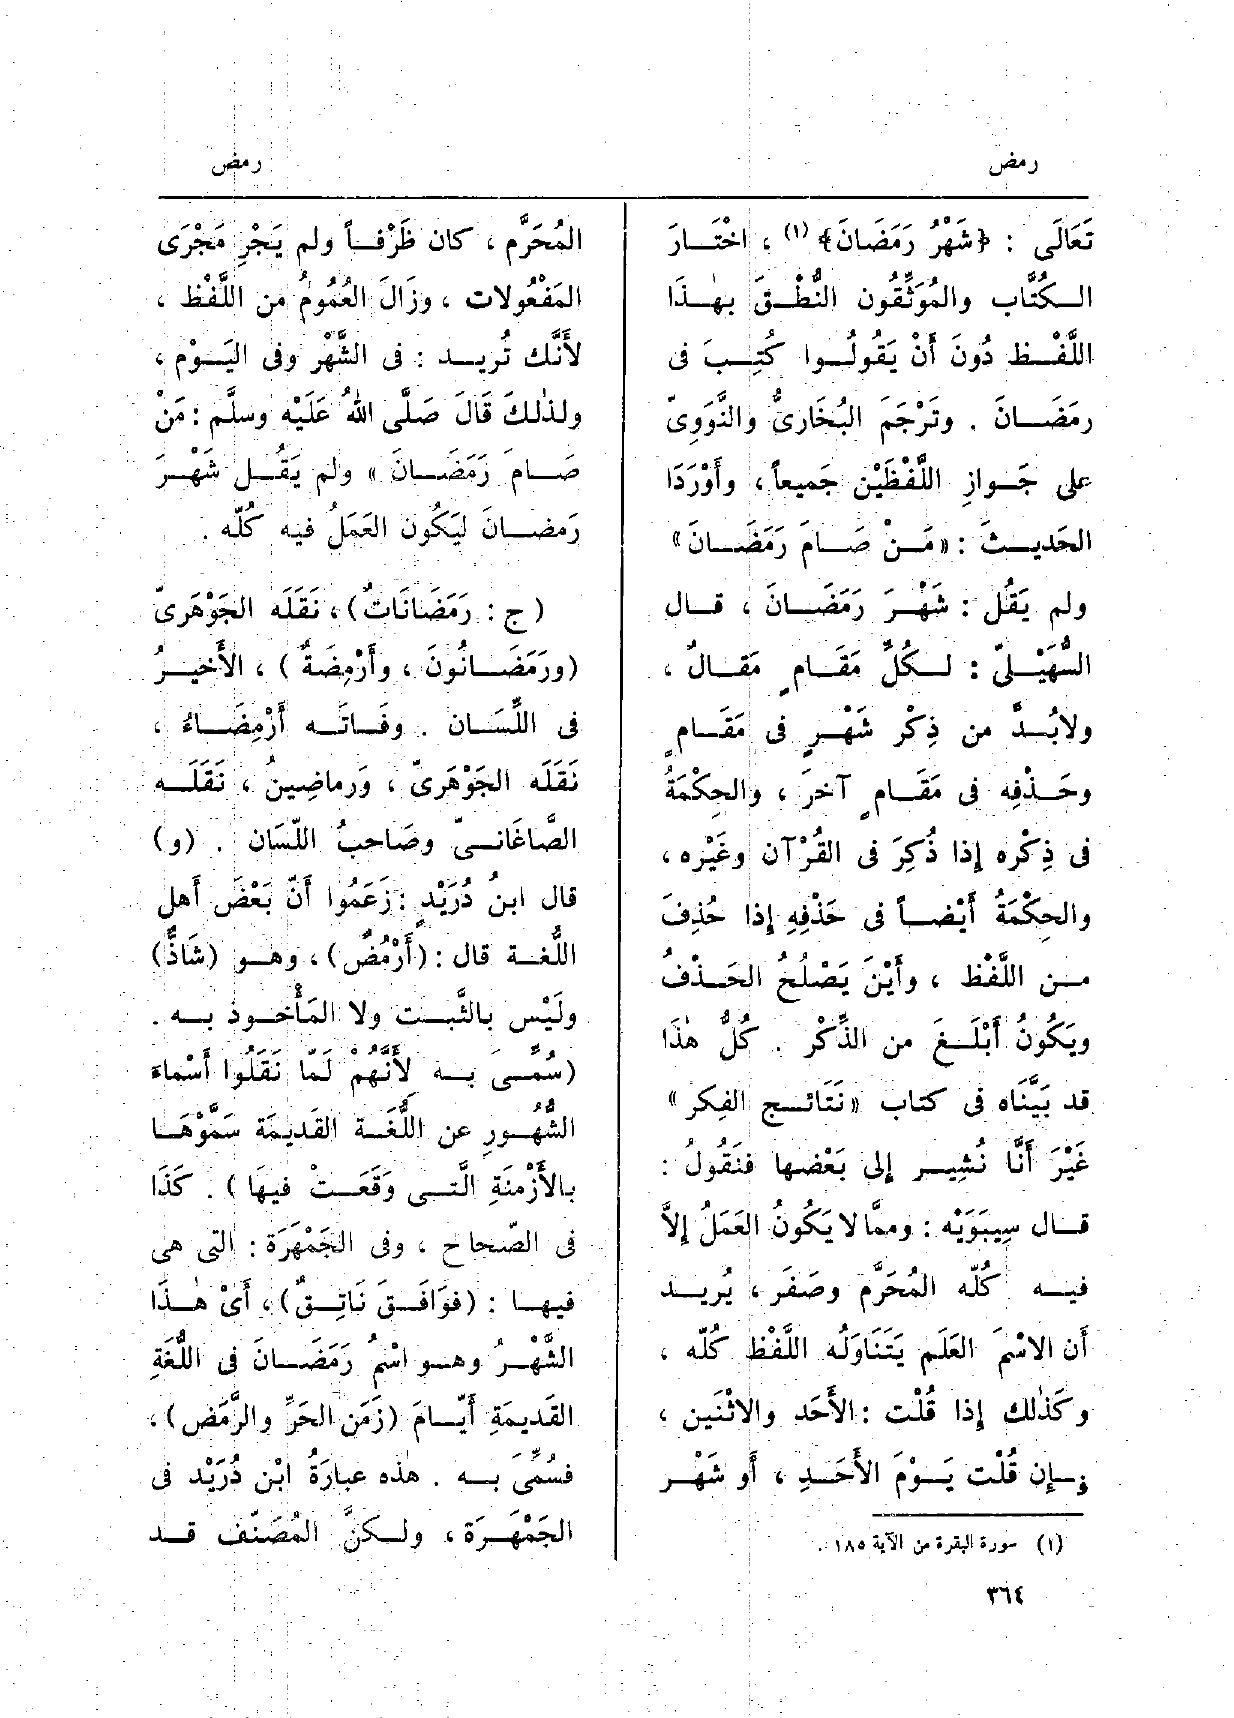 رمض
رمض
تَعَالَى : ﴿شَهْرُ رَمَضَانَ﴾ (١) ، اخْتَارَ
الكُتَّاب والمُوَثِّقُون النُّطْقَ بهٰذا
اللَّفْظ دُونَ أَنْ يَقُولُوا كُتِبَ فى
رمَضَانَ . وتَرْجَمَ البُخَارىُّ والنَّوَوِىّ
على جَوازِ اللَّفْظَيْن جَميعاً ، وأَوْرَدَا
الحَديثَ : «مَنْ صَامَ رَمَضَانَ»
ولم يَقُل : شَهْرَ رَمَضَانَ ، قال
السُّهَيْلىّ : لكُلِّ مَقَامٍ مَقالٌ ،
ولابُدَّ من ذِكْر شَهْرٍ فى مَقَامٍ
وحَذْفِه فى مَقَامٍ آخرَ ، والحِكْمَةُ
فى ذِكْره إذا ذُكِرَ فى القُرْآن وغَيْره ،
والحِكْمَةُ أَيْضاً فى حَذْفِهِ إذا حُذِفَ
من اللَّفْظ ، وأَيْنَ يَصْلُحُ الحَذْفُ
ويَكُونُ أَبْلَغَ من الذِّكْر . كُلُّ هٰذَا
قد بَيَّنَاه فى كتاب «نَتَائج الفِكر»
غَيْرَ أَنَّا نُشِير إلى بَعْضها فنَقُولُ :
قال سِيبَوَيْه : وممَّا لا يَكُونُ العَمَلُ إلاَّ
فيه كُلّه المُحَرَّم وصَفَر ، يُريد
أَن الاسْمَ العَلَم يَتَنَاوَلُه اللَّفْظ كُلّه ،
وكَذٰلك إذا قُلْت : الأَحَد والاثْنَين ،
وإن قُلْت يَوْمَ الأَحَدِ ، أَو شَهْر
(١) سورة البقرة من الآية ١٨٥ .
المُحَرَّم ، كان ظَرْفاً ولم يَجْرِ مَجْرَى
المَفْعُولات ، وزَالَ العُمُومُ من اللَّفْظ ،
لأَنَّك تُريد : فى الشَّهْر وفى اليَوْم ،
ولذٰلكَ قَالَ صَلَّى اللهُ عَلَيْه وسلَّم : مَنْ
صَامَ رَمَضَانَ » ولم يَقُل شَهْرَ
رَمضانَ ليَكُون العَمَلُ فيه كُلّه .
(ج : رَمَضَانَاتٌ) ، نَقَلَه الجَوْهَرىّ
(ورَمَضَانُونَ ، وأَرْمِضَةٌ ) ، الأَخيرُ
فى اللِّسَان . وفَاتَه أَرْمِضَاءُ ،
نَقَلَه الجَوْهَرىّ ، ورَماضِينُ ، نَقَلَه
الصَّاغَانىّ وصَاحبُ اللّسَان . (و)
قال ابنُ دُرَيْدٍ : زَعَمُوا أَنّ بَعْضَ أَهلِ
اللُّغة قال : (أَرْمُضٌ) ، وهو (شَاذٌّ)
ولَيْس بالثَّبت ولا المَأْخوذ به .
(سُمِّىَ به لأَنَّهُمْ لَمّا نَقَلُوا أَسْماءَ
الشُّهُورِ عن اللُّغَة القَديمَة سَمَّوْهَا
بالأَزْمنَةِ الَّتى وَقَعَتْ فيهَا ) . كَذَا
فى الصّحاح ، وفى الجَمْهَرَة : التى هى
فيها : (فوَافَقَ نَاتِقٌ) ، أَىْ هٰذا
الشَّهْرُ وهو اسْمُ رَمَضَانَ فى اللُّغَةِ
القَديمَةِ أَيّامَ (زَمَن الحَرِّ والرَّمَض) ،
فسُمِّىَ به . هٰذه عبارَةُ ابْن دُرَيْد فى
الجَمْهَرَة ، ولكنَّ المُصَنّف قد
٣٦٤